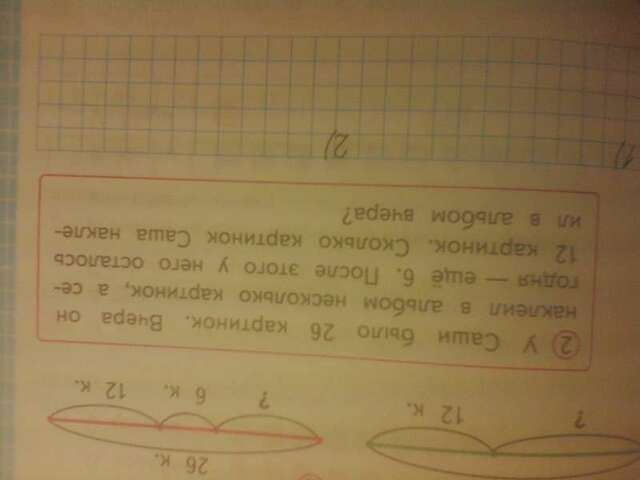 26 к.
? 12 к.
? 6 к. 12 к.
2 У Саши было 26 картинок. Вчера он
наклеил в альбом несколько картинок, а се-
годня — ещё 6. После этого у него осталось
12 картинок. Сколько картинок Саша накле-
ил в альбом вчера?
1) 2)